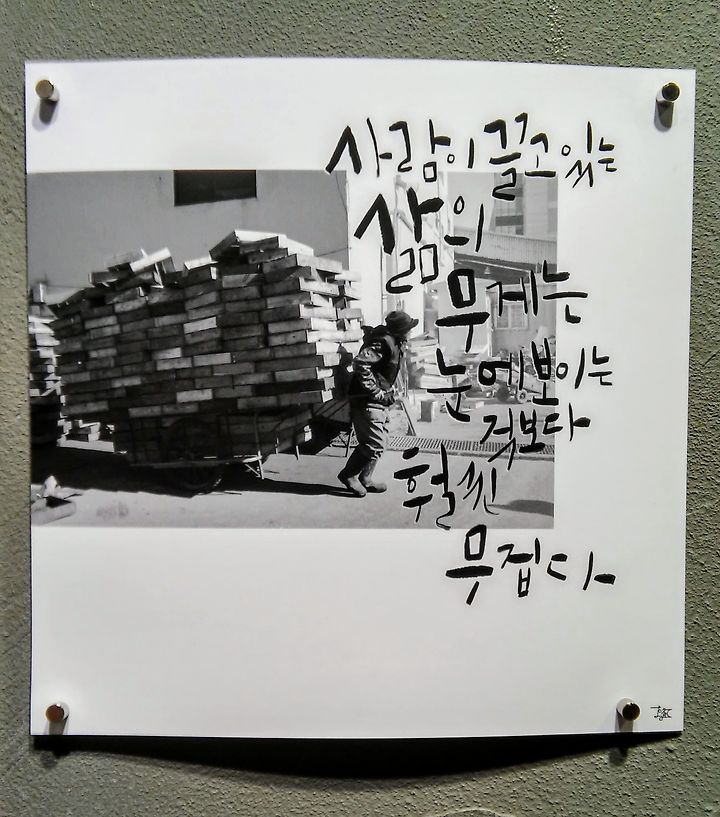 사람이 끌고 있는
삶의
무게는
눈에 보이는
것보다
훨씬
무겁다